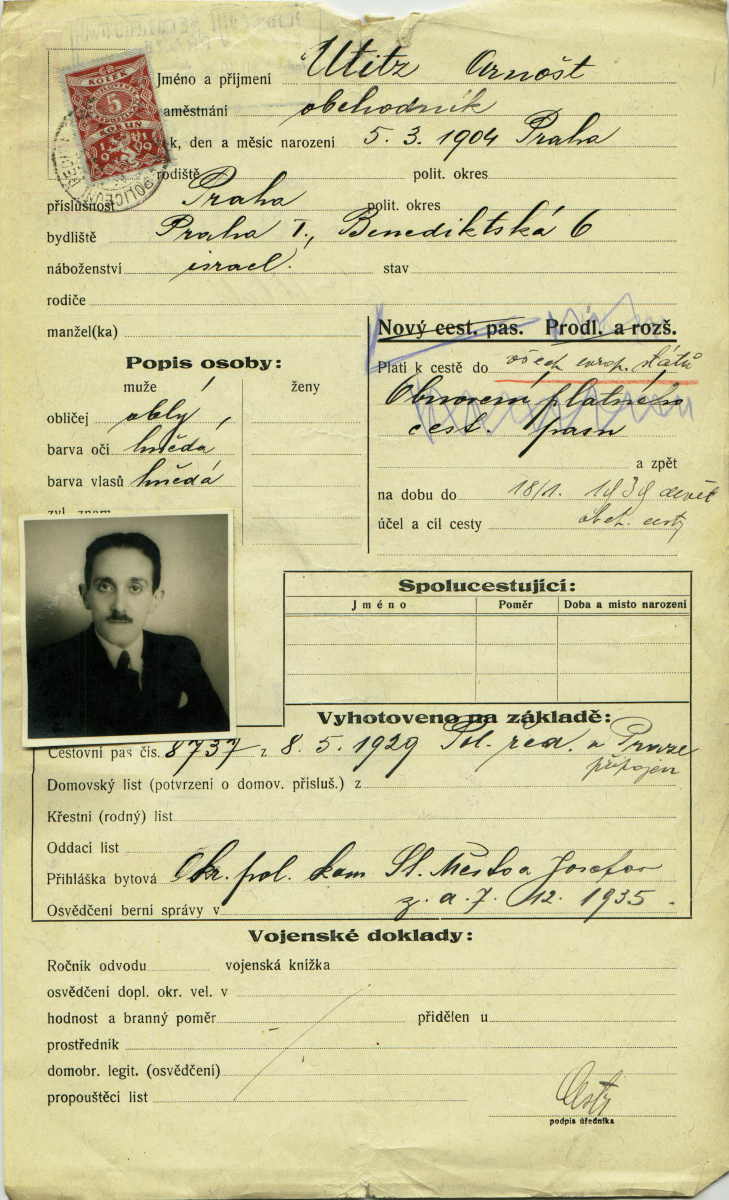 KOLEK
5
KORUN
1919
POLICEJNÍ
Jméno a příjmení Utitz Arnošt
zaměstnání obchodník
k, den a měsíc narození 5. 3. 1904 Praha
rodiště polit. okres
příslušnost Praha polit. okres
bydliště Praha I., Benediktská 6
náboženství israel. stav
rodiče
manžel(ka)
Popis osoby:
muže ženy
obličej oblý
barva očí hnědá
barva vlasů hnědá
zvl. znam.
Nový cest. pas. Prodl. a rozš.
Platí k cestě do všech evrop. států
Obnovení platného
cest. pasu
a zpět
na dobu do 18/1. 1939 devět
účel a cíl cesty obch. cesty
Spolucestující:
Jméno Poměr Doba a místo narození
Vyhotoveno na základě:
Cestovní pas čís. 8737 z 8. 5. 1929 Pol. řed. v Praze
připojen
Domovský list (potvrzení o domov. přísluš.) z
Křestní (rodný) list
Oddací list
Přihláška bytová Okr. pol. kom St. Město a Josefov
Osvědčení berní správy v z. a. 7. 12. 1935.
Vojenské doklady:
Ročník odvodu vojenská knížka
osvědčení dopl. okr. vel. v
hodnost a branný poměr přidělen u
prostředník
domobr. legit. (osvědčení)
propouštěcí list
podpis úředníka